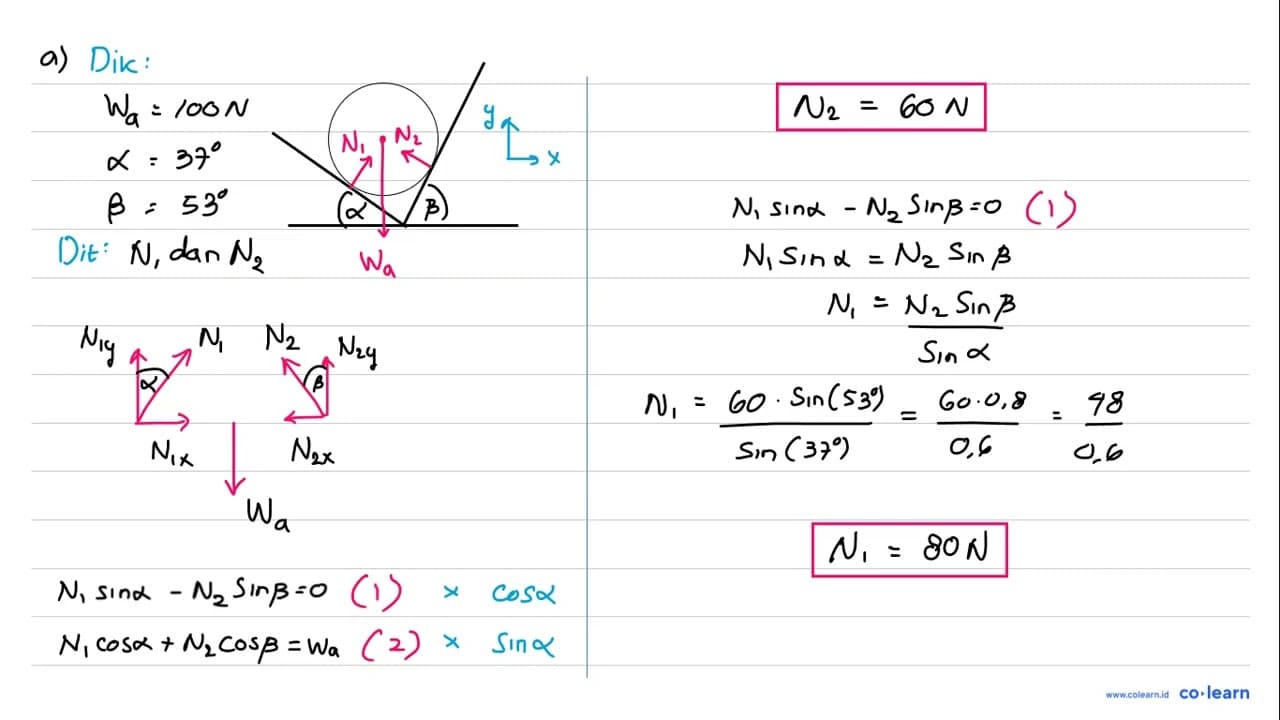 a) Dik:
Wₐ = 100 N
α = 37°
β = 53°
Dit: N₁ dan N₂
N₁
N₂
y
x
α
β
Wₐ
N₁y
N₁
N₂
N₂y
α
β
N₁x
N₂x
Wₐ
N₁ sinα - N₂ Sinβ = 0 (1) × cosα
N₁ cosα + N₂ Cosβ = Wₐ (2) × Sinα
N₂ = 60 N
N₁ sinα - N₂ Sinβ = 0 (1)
N₁ Sinα = N₂ Sinβ
N₁ = N₂ Sinβ / Sinα
N₁ = 60 · Sin(53°) / Sin(37°) = 60·0,8 / 0,6 = 48 / 0,6
N₁ = 80 N
www.colearn.id co·learn